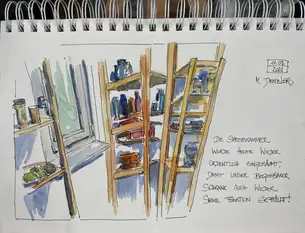 M. DENGLER
DIE SPEISEKAMMER
WURDE HEUTE WIEDER
ORDENTLICH EINGERÄUMT,
DAMIT UNSER BEGEHBARER
SCHRANK AUCH WIEDER
SEINE FUNKTION ERFÜLLT!